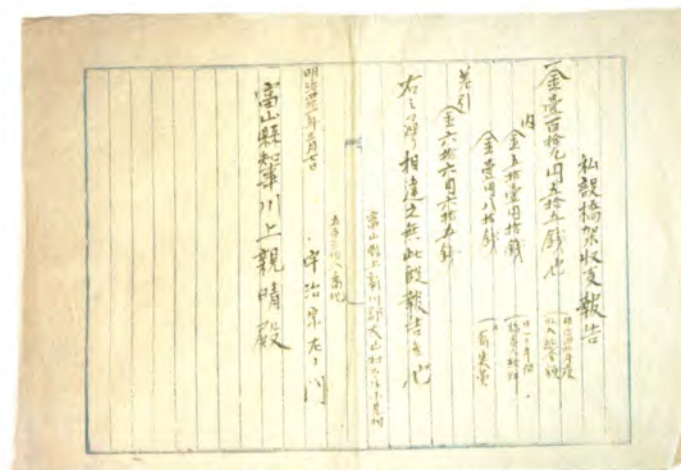 私設橋架收支報告
一金壹百拾九円五拾五錢也
内
金五拾壹円拾錢
金壹円八拾錢
差引
金六拾六円六拾五錢
右之通り相違之無此段報告候也
富山縣上新川郡大山村
明治四十二年三月七日
宇治宗左エ門
富山縣知事川上親晴殿